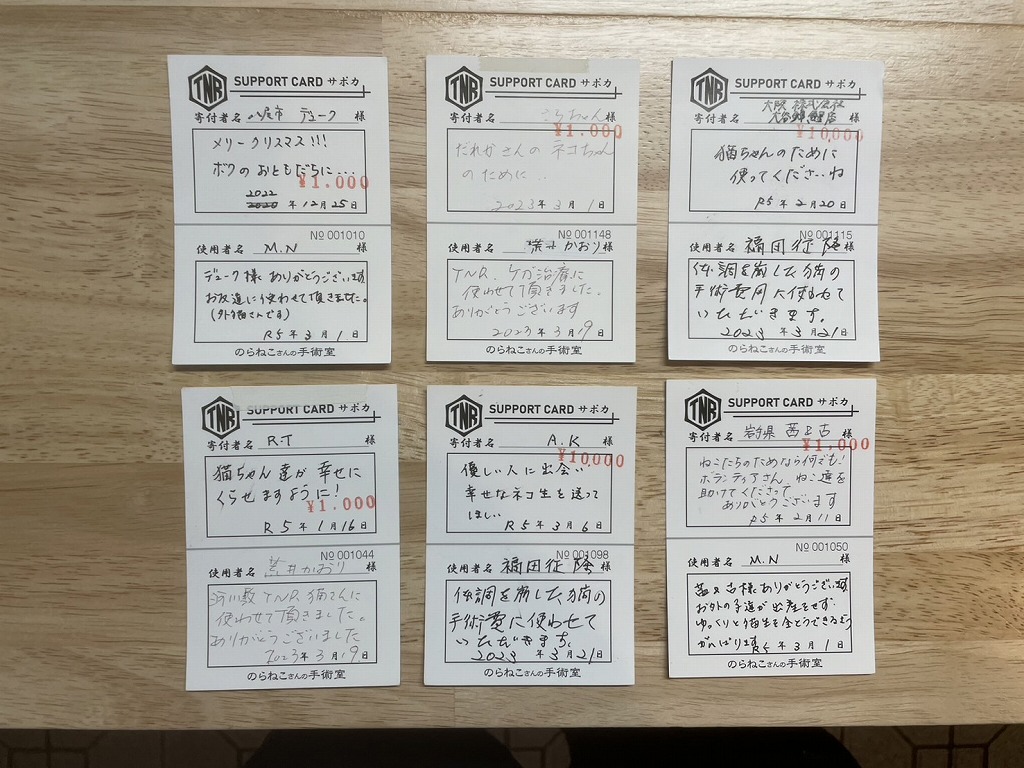 TNR SUPPORT CARD サポカ
寄付者名 デューク 様
メリークリスマス!!!
ボクのおともだちに...
¥1.000
2022
2020 年 12月 25日
№ 001010
使用者名 M.N 様
デューク様ありがとうございます
お友達に使わせて頂きました。
(外猫さんです)
R5 年 3 月 1 日
のらねこさんの手術室
TNR SUPPORT CARD サポカ
寄付者名 ちゃん 様
¥1.000
だれかさんのネコちゃん
のために..
2023 年 3 月 1 日
№ 001148
使用者名 かおり 様
TNR、ケガ治療に
使わせて頂きました。
ありがとうございます
2023 年 3 月 19 日
のらねこさんの手術室
TNR SUPPORT CARD サポカ
寄付者名 様
¥10,000
猫ちゃんのために
使ってくださいね
R5 年 2 月 20 日
№ 001115
使用者名 福田征隆 様
体調を崩した猫の
手術費用に使わせて
いただきます。
2023 年 3 月 21 日
のらねこさんの手術室
TNR SUPPORT CARD サポカ
寄付者名 RT 様
猫ちゃん達が幸せに
くらせますように!
¥1.000
R5 年 1 月 16 日
№ 001044
使用者名 荒井かおり 様
TNR 猫さんに
使わせて頂きました。
ありがとうございました
2023 年 3 月 19 日
のらねこさんの手術室
TNR SUPPORT CARD サポカ
寄付者名 A.K 様
¥10,000
優しい人に出会い
幸せなネコ生を送って
ほしい
R5 年 3 月 6 日
№ 001098
使用者名 福田征隆 様
体調を崩した猫の
手術費に使わせて
いただきます。
2023 年 3 月 21 日
のらねこさんの手術室
TNR SUPPORT CARD サポカ
寄付者名 岩手県 茜&古 様
¥1,000
ねこたちのためなら何でも!
ボランティアさん、ねこ達を
助けてくださって
ありがとうございます
R5 年 2 月 11 日
№ 001050
使用者名 M.N 様
茜&古様ありがとうございます
お外の子達が出産をせず
ゆっくりと猫生を全うできるよう
がんばります
R5 年 3 月 1 日
のらねこさんの手術室